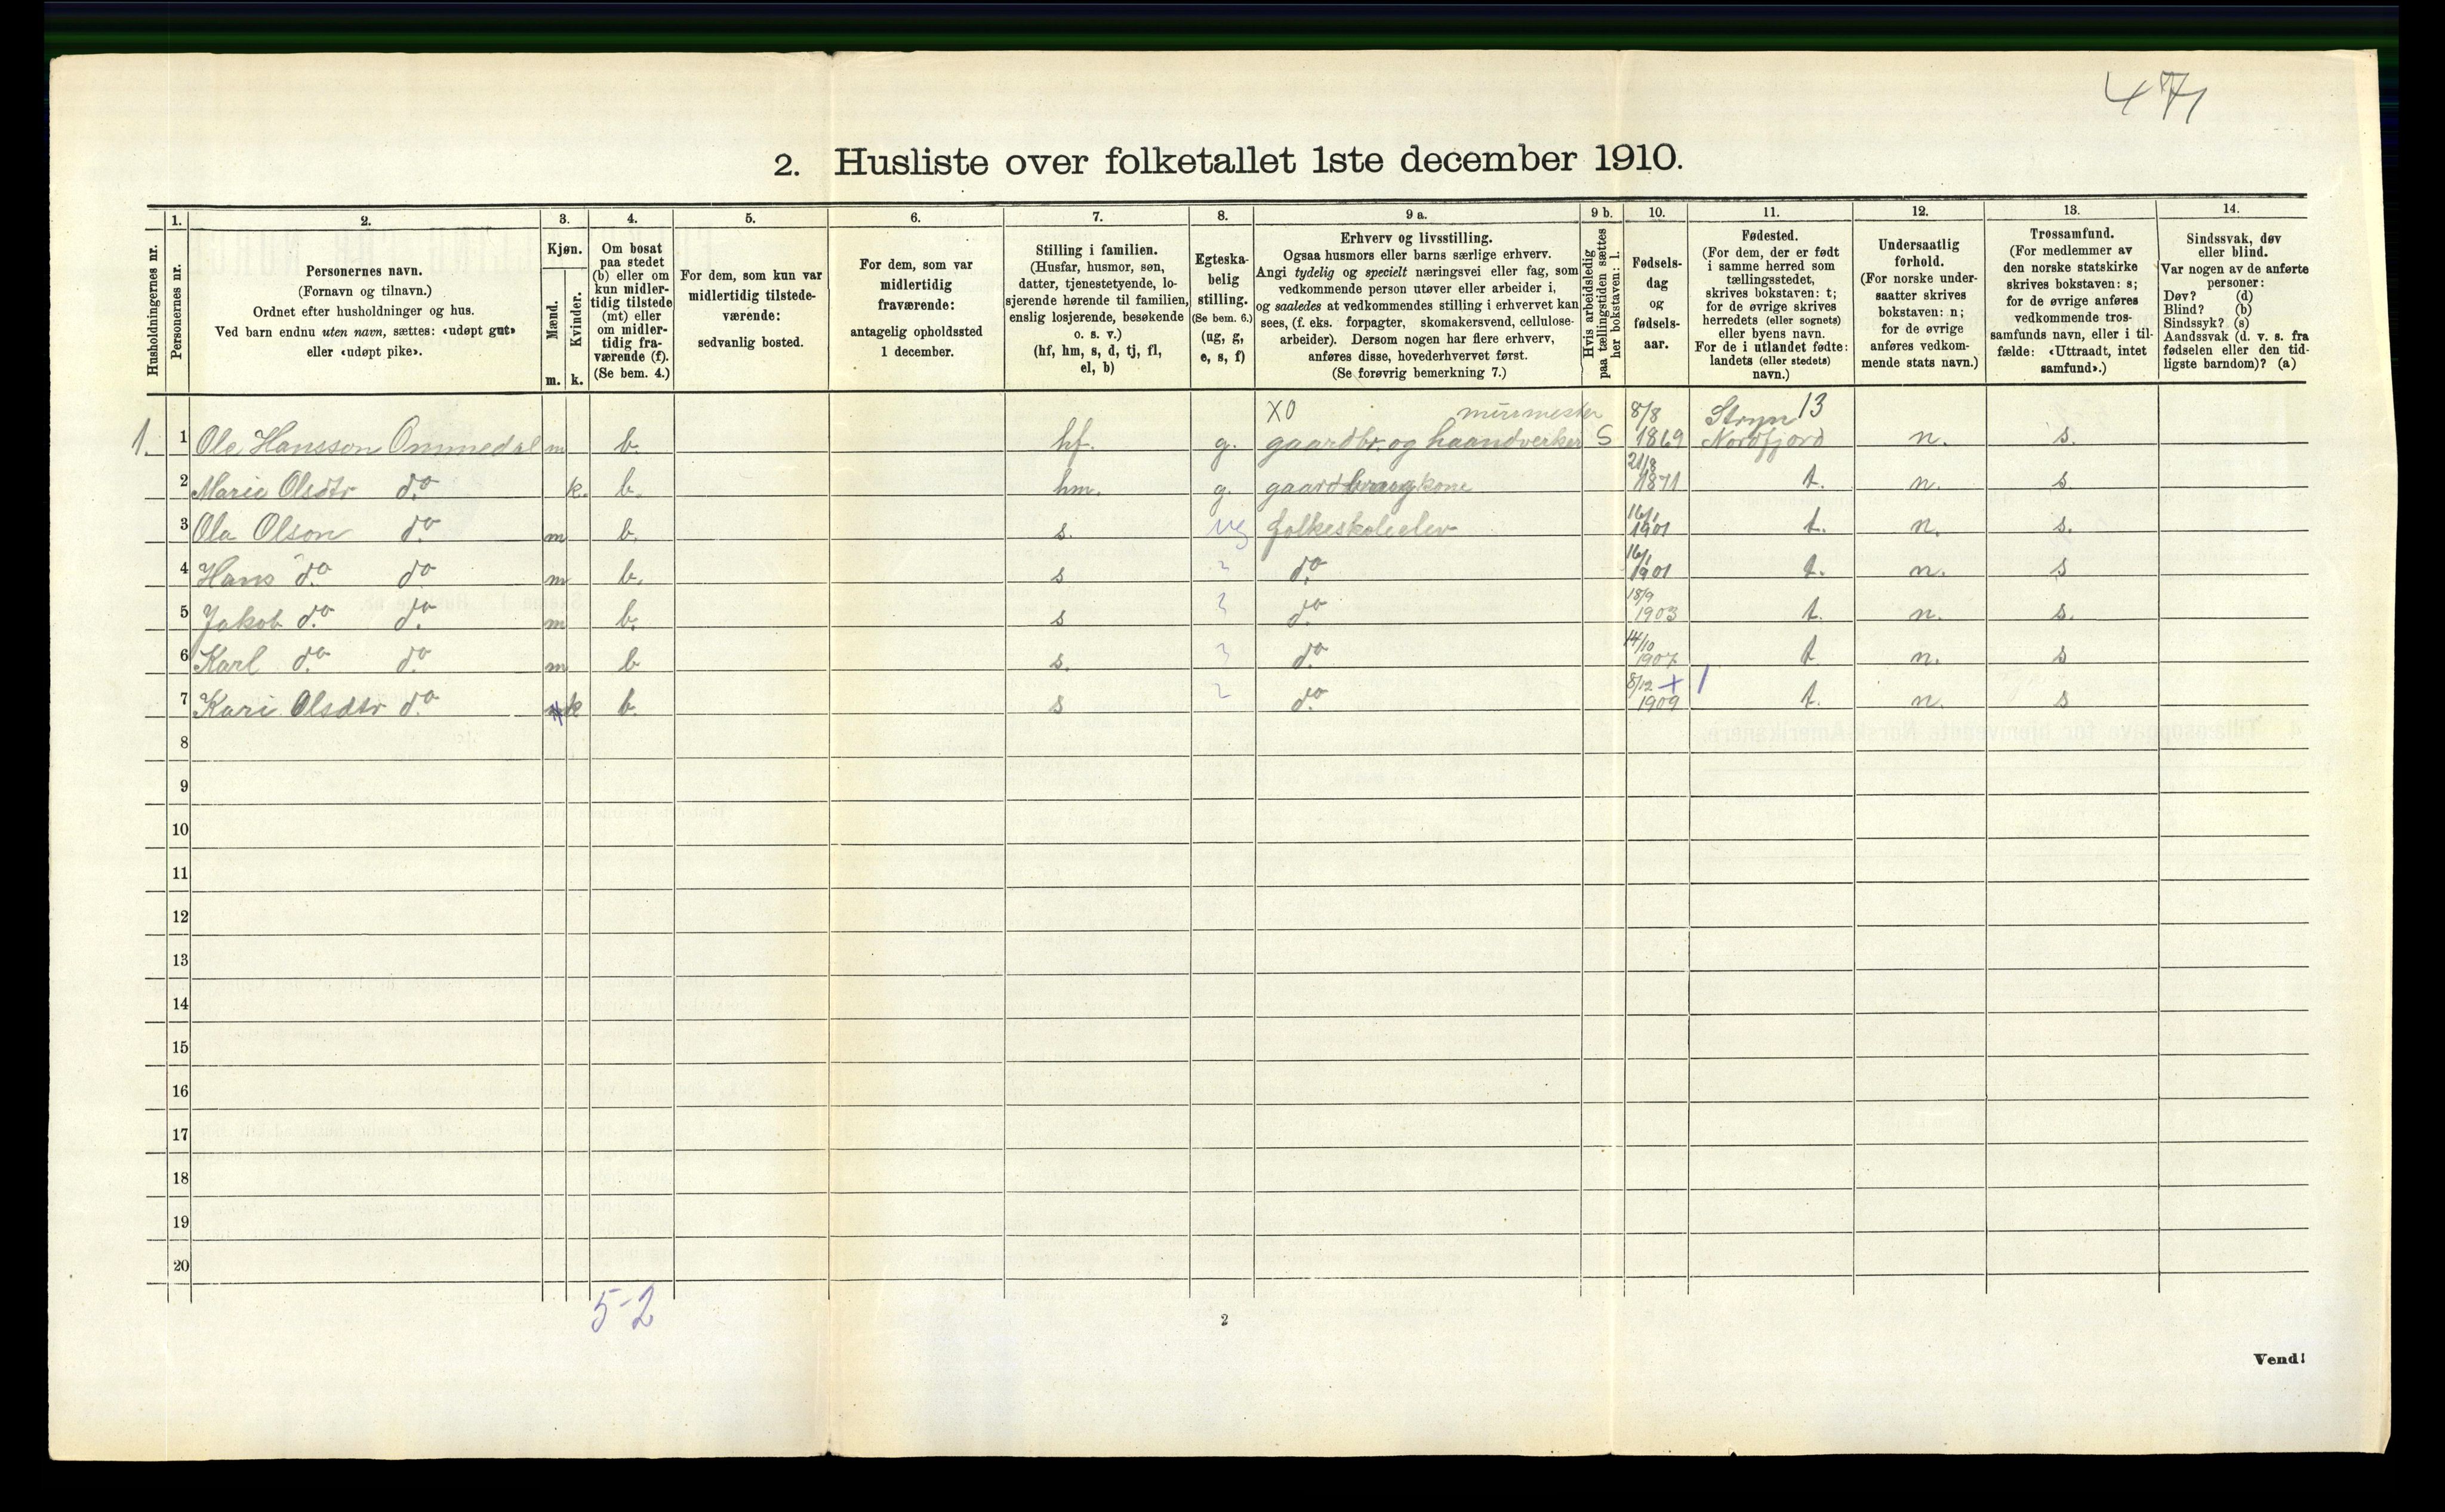 471
2. Husliste over folketallet 1ste december 1910.
Husholdningernes nr.
1.
Personernes nr.
2.
Personernes navn.
(Fornavn og tilnavn.)
Ordnet efter husholdninger og hus.
Ved barn endnu uten navn, sættes: «udøpt gut»
eller «udøpt pike».
3.
Kjøn.
Mænd.
Kvinder.
m. k.
4.
Om bosat
paa stedet
(b) eller om
kun midler-
tidig tilstede
(mt) eller
om midler-
tidig fra-
værende (f).
(Se bem. 4.)
5.
For dem, som kun var
midlertidig tilstede-
værende:
sedvanlig bosted.
6.
For dem, som var
midlertidig
fraværende:
antagelig opholdssted
1 december.
7.
Stilling i familien.
(Husfar, husmor, søn,
datter, tjenestetyende, lo-
sjerende hørende til familien,
enslig losjerende, besøkende
o. s. v.)
(hf, hm, s, d, tj, fl,
el, b)
8.
Egteska-
belig
stilling.
(Se bem. 6.)
(ug, g,
e, s, f)
9 a.
Erhverv og livsstilling.
Ogsaa husmors eller barns særlige erhverv.
Angi tydelig og specielt næringsvei eller fag, som
vedkommende person utøver eller arbeider i,
og saaledes at vedkommendes stilling i erhvervet kan
sees, (f. eks. forpagter, skomakersvend, cellulose-
arbeider). Dersom nogen har flere erhverv,
anføres disse, hovederhvervet først.
(Se forøvrig bemerkning 7.)
9 b.
Hvis arbeidsledig
paa tællingstiden sættes
her bokstaven: l.
10.
Fødsels-
dag
og
fødsels-
aar.
11.
Fødested.
(For dem, der er født
i samme herred som
tællingsstedet,
skrives bokstaven: t;
for de øvrige skrives
herredets (eller sognets)
eller byens navn.
For de i utlandet fødte:
landets (eller stedets)
navn.)
12.
Undersaatlig
forhold.
(For norske under-
saatter skrives
bokstaven: n;
for de øvrige
anføres vedkom-
mende stats navn.)
13.
Trossamfund.
(For medlemmer av
den norske statskirke
skrives bokstaven: s;
for de øvrige anføres
vedkommende tros-
samfunds navn, eller i til-
fælde: «Uttraadt, intet
samfund».)
14.
Sindssvak, døv
eller blind.
Var nogen av de anførte
personer:
Døv? (d)
Blind? (b)
Sindssyk? (s)
Aandssvak (d. v. s. fra
fødselen eller den tid-
ligste barndom)? (a)
XO murmester 8/8 Stryn 13
1. 1 Ole Hansson Ommedal m b. hf. g. gaardbr. og haandverker S 1869 Nordfjord n. s.
2 Marie Olsdtr do k. b. hm. g. gaardbrugkone 21/8 1871 t. n. s.
3 Ola Olson do m b. s. ug folkeskoleelev 16/1 1901 t. n. s.
4 Hans do do m b. s do 16/1 1901 t. n. s
5 Jakob do do m b. s do 18/9 1903 t. n. s.
6 Karl do do m b s. do 14/10 1907 t n. s
7 Kari Olsdtr do k b. s do 8/12 + 1909 t. n. s
8
9
10
11
12
13
14
15
16
17
18
19
20
5-2
2
Vend!